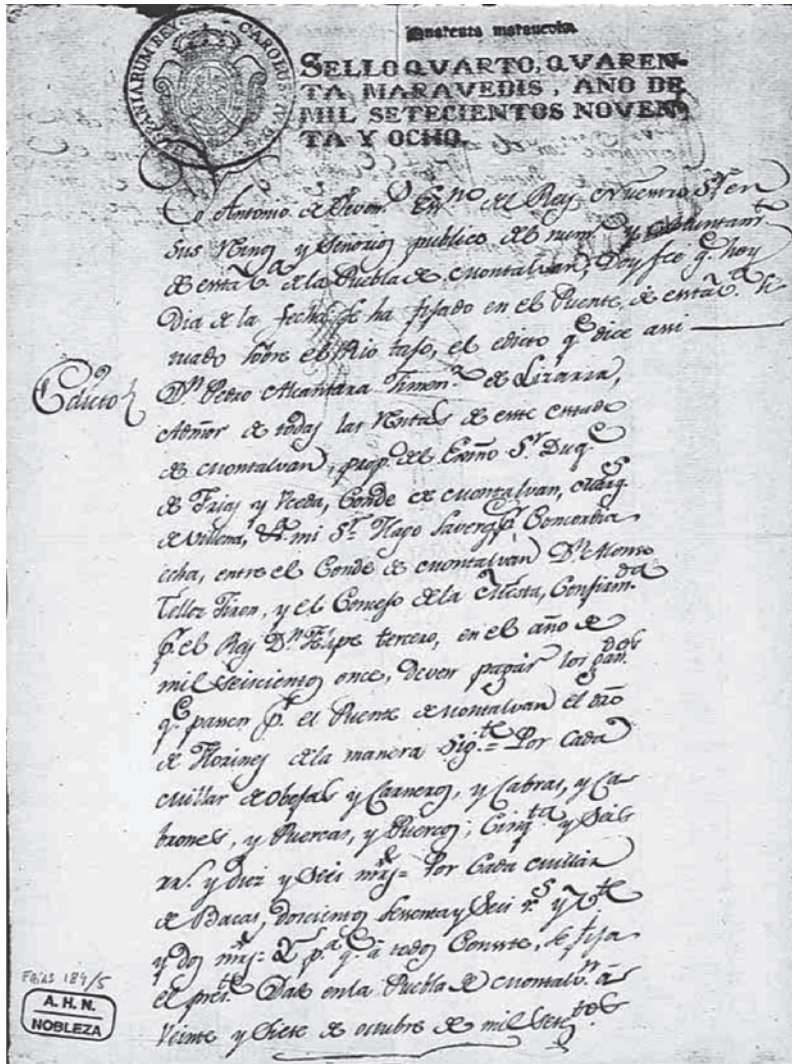 Quarenta maravedis.
CAROLUS IV D G HISPANIARUM REX
SELLO QVARTO, QVAREN-
TA MARAVEDIS, AÑO DE
MIL SETECIENTOS NOVEN-
TA Y OCHO.
Yo Antonio de Ess.no del Rey Nuestro S.r en
sus Rnos y Senorios publico del num.o y
de esta V.a de la Puebla de Montalvan, Doy fee q.e hoy
Dia de la fecha se ha fijado en el Puente, de esta V.a si
tuado sobre el Rio tajo, el edicto q.e dice assi
Edicto
D.n Pedro Alcantara Ximen.z de Lizaria,
Admor de todas las Rentas de este estado
de Montalvan, prop.o del Exmo S.r Duq.e
de Frias y Uceda, Conde de Montalvan, Marq.s
de Villena, &.a mi S.r Hago saver q.e p.r Concordia
echa, entre el Conde de Montalvan D.n Alonso
Tellez Jiron, y el Consejo de la Mesta, Confirm.da
p.r el Rey D.n Felipe tercero, en el año de
mil seiscientos once, deven pagar los gan.dos
q.e passen p.r el Puente de Montalvan el dro
de Florines de la manera sig.te = Por Cada
Millar de Obejas y Carneros, y Cabras, y Ca
brones, y Puercas, y Puercos; Cinq.ta y Seis
rrs. y diez y Seis mrs = Por Cada Millar
de Bacas, doscientos Sesenta y Seis r.s y
y dos mrs = Y p.a q.e a todos Conste, se fija
el pres.te Dado en la Puebla de Montalv.n a
Veinte y Siete de octubre de mil Sete.tos
FRIAS 189/5
A. H. N.
NOBLEZA